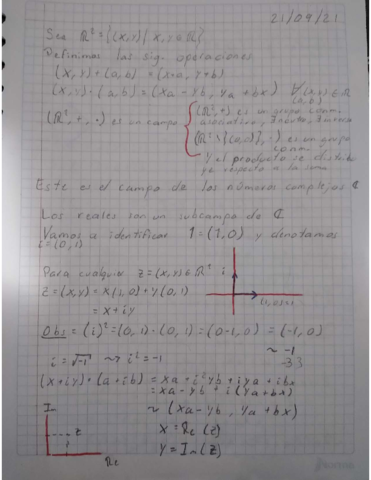 21/09/21
Sea ℝ² = {(x,y) | x,y ∈ ℝ}
Definimos las sig. operaciones
(x,y)+(a,b) = (x+a, y+b)
(x,y)·(a,b) = (xa-yb, ya+bx) ∀ (x,y) ∈ ℝ
(a,b)
(ℝ²,+,·) es un campo { (ℝ²,+) es un grupo conm.
asociativo,
(ℝ²\{(0,0)},·) es un grupo
conm.
y el producto se distribu
ye respecto a la suma
Este es el campo de los números complejos ℂ
Los reales son un subcampo de ℂ
Vamos a identificar 1=(1,0) y denotamos
i=(0,1)
Para cualquier z=(x,y)∈ℝ² i
z=(x,y)=x(1,0)+y(0,1)
(1,0)=1
= x+iy
Obs = (i)²=(0,1)·(0,1)=(0-1,0) = (-1,0)
~ -1
i=√-1 ~> i²=-1
(x+iy)·(a+ib) = xa+i²yb+iya+ibx
= xa-yb + i(ya+bx)
Im ~ (xa-yb, ya+bx)
z x = Re(z)
y = Im(z)
Re